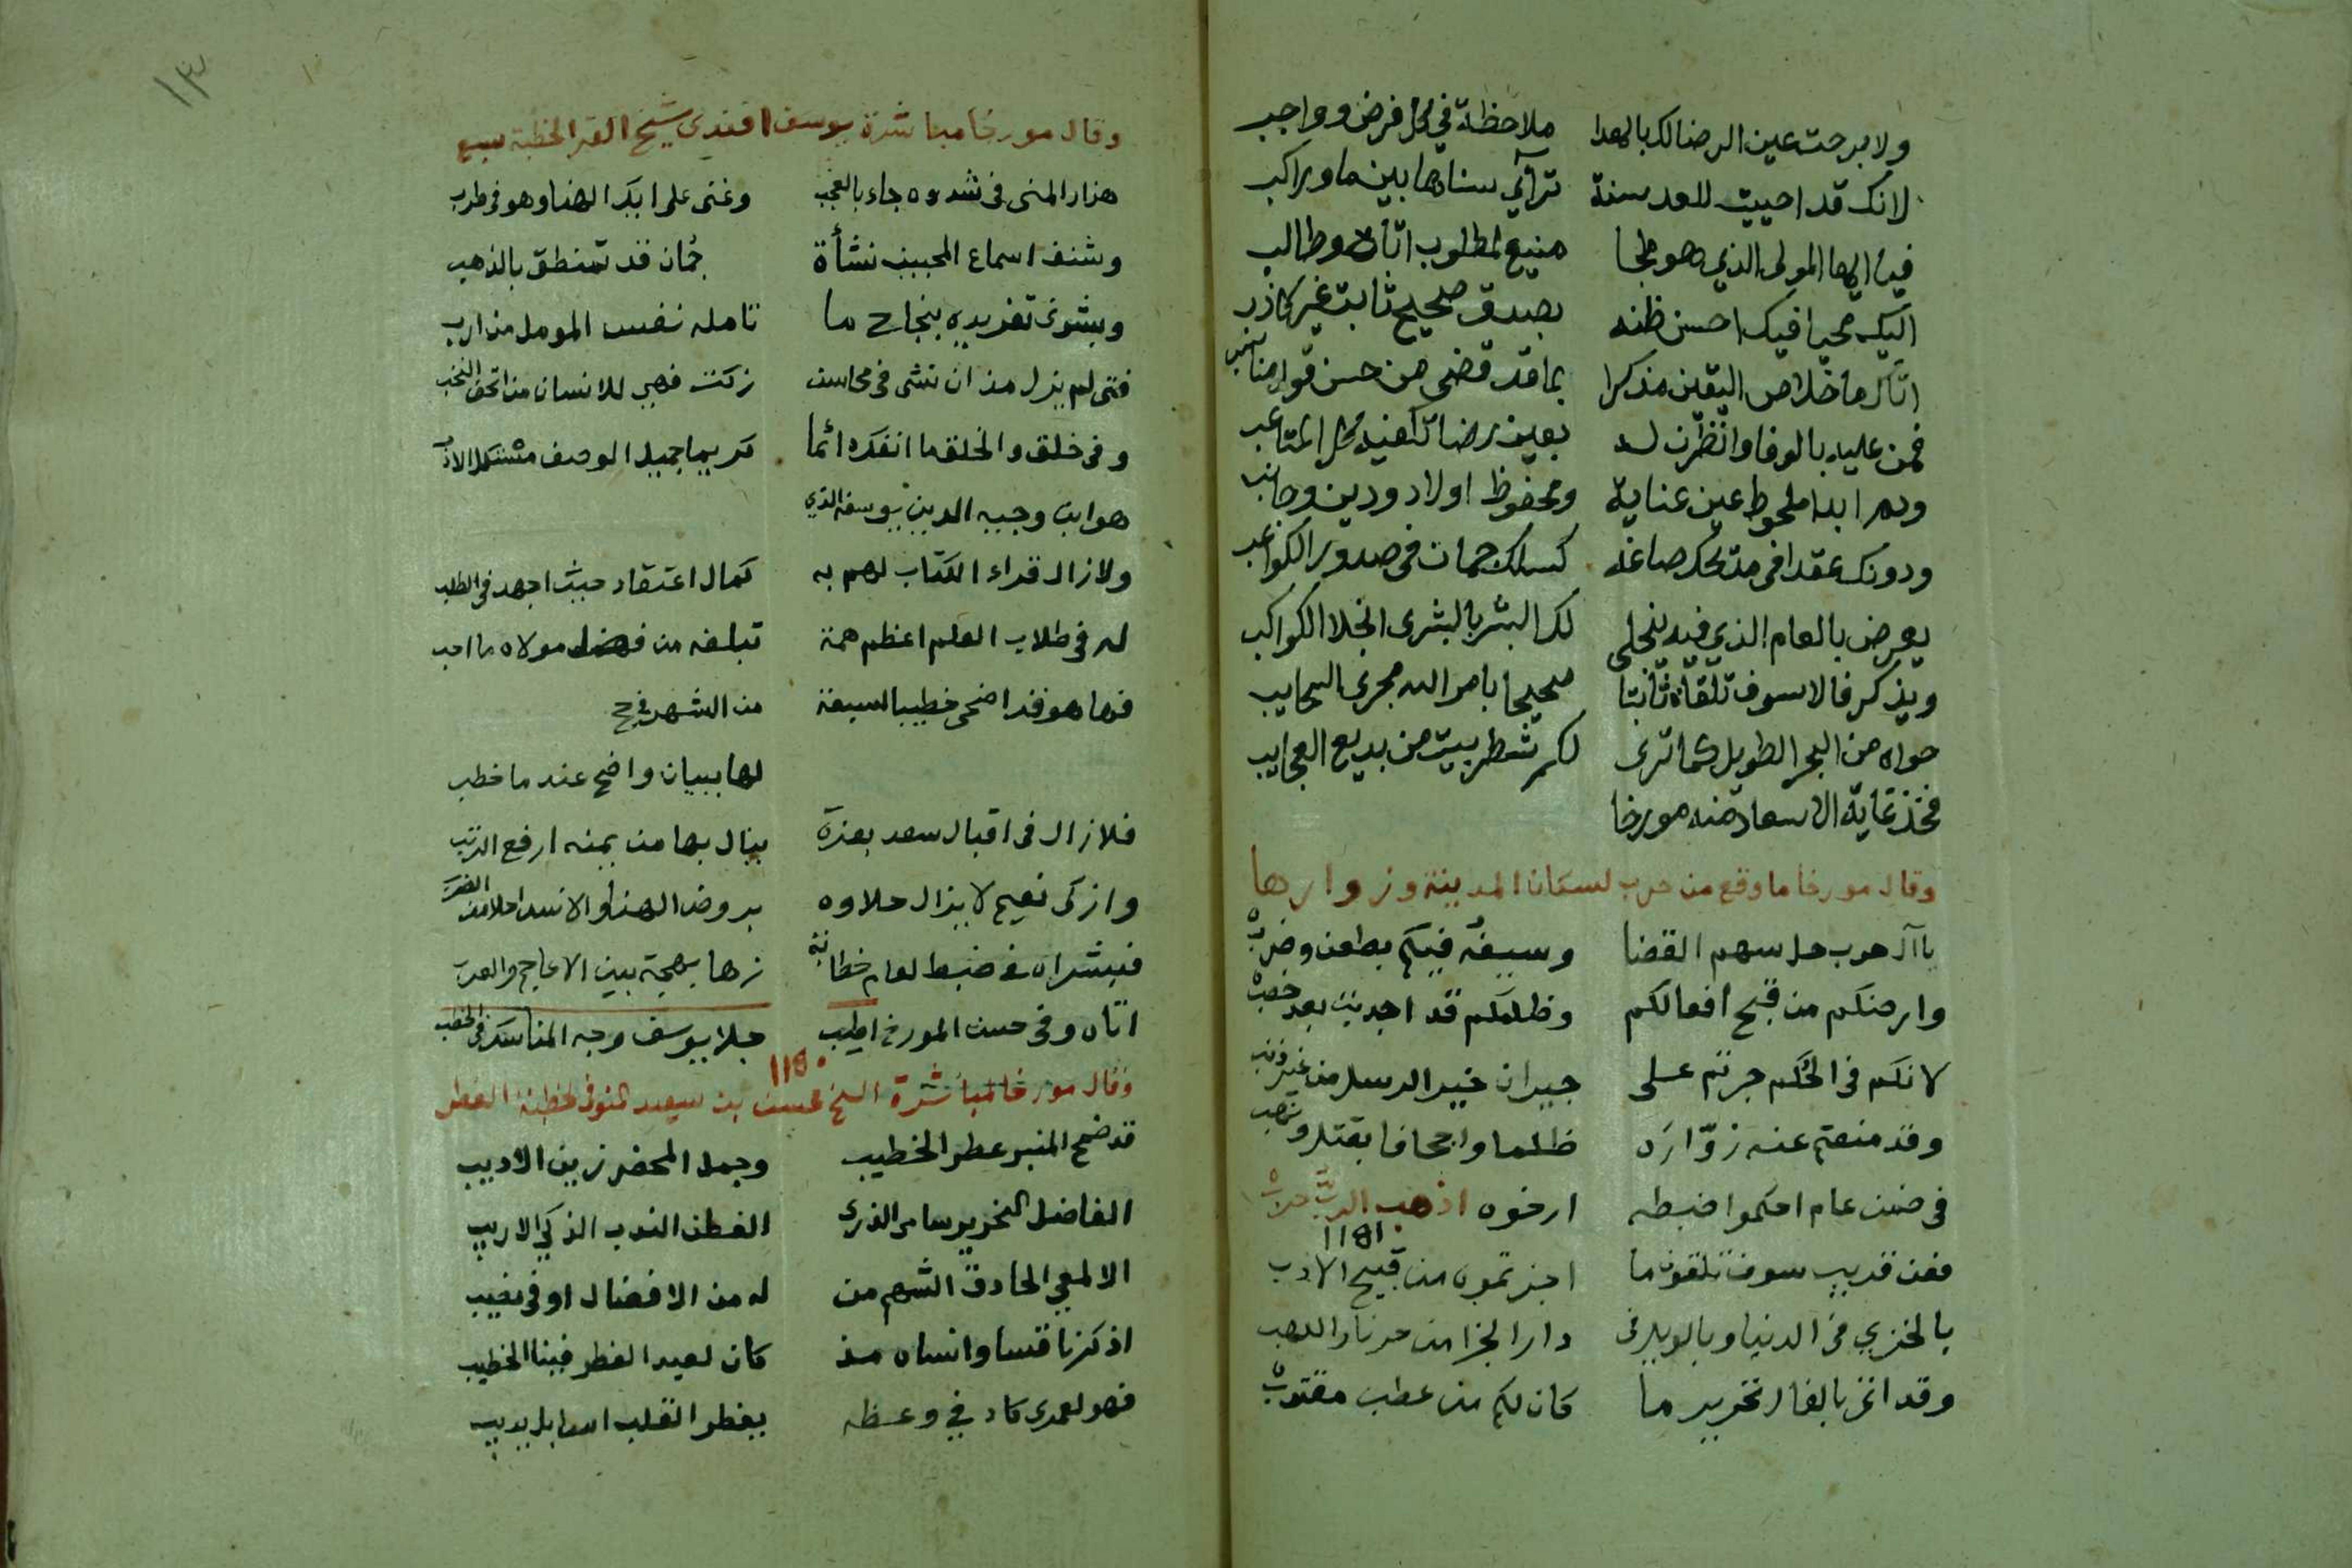 ولا برحت عين الرضا لك بالهدا ملاحظة في كل فرض وواجب
لانك قد احييت للعد سنة ترآي سناها بين ماو راكب
فيا ايها المولى الذي هو ملجا منيع لمطلوب اتاه وطالب
اليك محيا فيك احسن ظنه بصدق صحيح ثابت غير كاذب
اتاك ما خلاص اليقين مذكرا بما قد قضى من حسن قول
فمن عليه بالوفا وانظرن له بعين رضا تكفيه كل المتاعب
ودم ابدا ملحوظ عين عناية ومحفوظ اولاد ودين وجانب
ودونك عقدا في مدحك صاغه كسلك جمان في صدور الكواعب
يعرض بالعام الذي فيه ينجلي لك البشر بالبشرى انجلا الكواكب
ويذكر فالا سوف تلقاه ثابتا صحيحا بامر الله مجرى السحايب
حواه من البحر الطويل كما ترى لكم شطر بيت من بديع العجايب
فخذ غاية الاسعاد منه مورخا
وقال مورخا ما وقع من حرب لسكان المدينة وزوارها
يا آل حرب حل سهم القضا وسيفه فيكم بطعن وضرب
وارضكم من قبح افعالكم وظلمكم قد اجدبت بعد خصب
لانكم في الحكم جرتم على جيران خير الرسل من غير ذنب
وقد منعتم عنه زوّاره ظلما واجحافا بقتل ونهب
في ضمن عام احكموا ضبطه ارخوه اذهب الربّ حرب
1181
فعن قريب سوف تلقون ما اجترتموه من قبيح الادب
بالخزي في الدنيا وبالويل في دار الجزا من حر نار اللهب
وقد اتى بالفال تحرير ما كان لكم من عطب مقترب
١٣
وقال مورخا مباشرة يوسف افندي شيخ القرا لخطبة سبع
هزار المنى في شدوه جاء بالعجب وغنى على ايك الهنا وهو في طرب
وشنف اسماع المحبين نشأة جمان قد تمنطق بالذهب
وبشرى تغريده بنجاح ما تامله نفس المومل من ارب
فتى لم يزل مذ ان نشى في محاسن زكت فهي للانسان من اتحف النخب
وفي خلق والخلق ما انفك دائما كريما جميل الوصف مشتمل الادب
هو ابن وجيه الدين يوسف الذي
ولا زال قراء الكتاب لهم به كمال اعتقاد حيث اجهد في الطلب
له في طلاب العلم اعظم همة تبلغه من فضل مولاه ما احب
فها هو قد اضحى خطيبا لسبعة من الشهر في ح
لها ببيان واضح عند ما خطب
فلا زال في اقبال سعد بعزة ينال بها من يمنه ارفع الرتب
وازكى نعيم لا يزال حلاوه بروض الهنا والانس احلا من الضرب
فبشراه في ضبط لعام خطابة زها بهجة بين الاعاجم والعرب
اتاه وفي حسن المورخ اطيب جلا يوسف وجه المناسك في الخطب
1180
وقال مورخا لمباشرة الشيخ محسن بن سعيد المنوفي لخطبة الفطر
قد ضمخ المنبر عطر الخطيب وجمل المحضر زين الاديب
الفاضل النحرير سامي الذرى الفطن الندب الذكي الاريب
الالمعي الحاذق الشهم من له من الافضال اوفى نصيب
اذكرنا قسا وانساه مذ كان لعيد الفطر فينا الخطيب
فهو لعمري كاد في وعظه يفطر القلب اسا بل يذيب